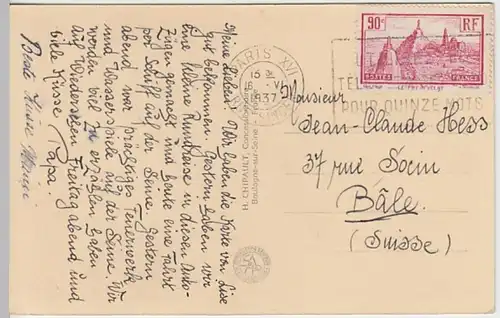 Meine Lieben! Wir haben die Karte von Lise
gut bekommen. Gestern haben wir
eine kleine Rundreise in diesen Auto-
Zügen gemacht und heute eine Fahrt
per Schiff auf der Seine. Gestern
abend war prächtiges Feuerwerk
und Wasserspiele auf der Seine. Wir
werden viel zu erzählen haben
auf Wiedersehen Freitag abend, und
viele Küsse Papa.
Beste Küsse
H. CHIPAULT, Concessionnaire
Boulogne-sur-Seine
PARIS XVI
15
1937
90c RF
POSTES FRANCE
POUR QUINZE MOTS
Monsieur
Jean-Claude Hess
37 rue Socin
Bâle
(Suisse)